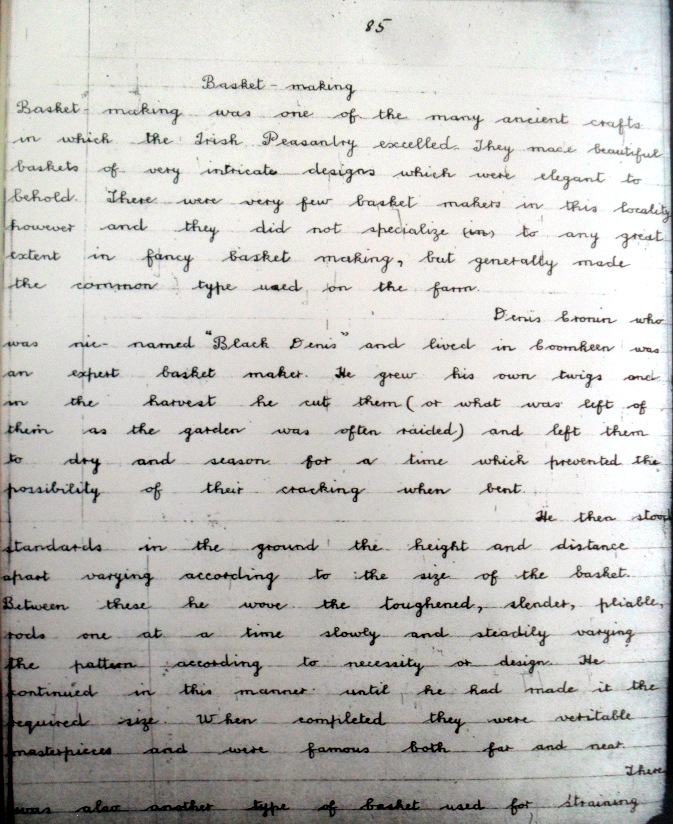 85
Basket - making
Basket - making was one of the many ancient crafts
in which the Irish Peasantry excelled. They made beautiful
baskets of very intricate designs which were elegant to
behold. There were very few basket makers in this locality
however and they did not specialize (in) to any great
extent in fancy basket making, but generally made
the common type used on the farm.
Denis Cronin who
was nic- named "Black Denis" and lived in Coomkeen was
an expert basket maker. He grew his own twigs and
in the harvest he cut them (or what was left of
them as the garden was often raided) and left them
to dry and season for a time which prevented the
possibility of their cracking when bent.
He then stood
standards in the ground the height and distance
apart varying according to the size of the basket.
Between these he wove the toughened, slender, pliable,
rods one at a time slowly and steadily varying
the pattern according to necessity or design. He
continued in this manner until he had made it the
required size. When completed they were veritable
masterpieces and were famous both far and near.
There
was also another type of basket used for straining